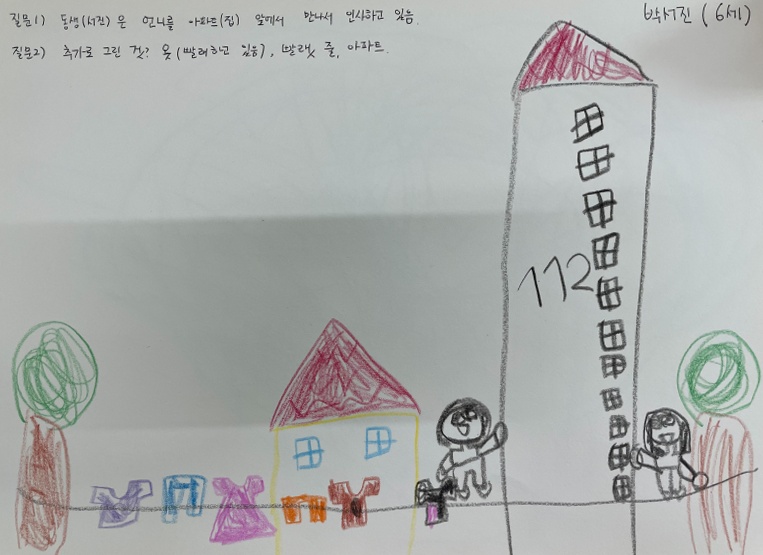 박서진 (6세)
질문1) 동생(서진)은 언니를 아파트(집) 앞에서 만나서 인사하고 있음.
질문2) 추가로 그린 것? 옷(빨래하고 있음), 빨랫줄, 아파트.
112